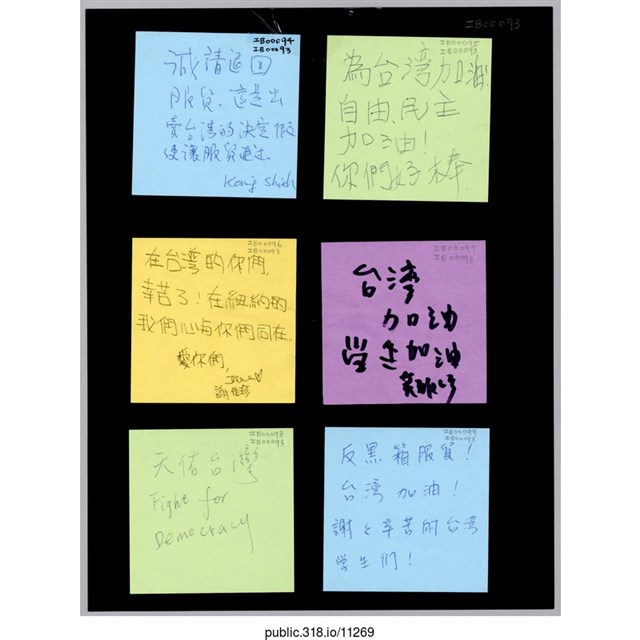 IB00093
IB00094
IB00093
誠請返回
服貿，這是出
賣台灣的決定
使讓服貿通过
IB00095
IB00093
為台湾加油!
自由、民主
加油!
你們好棒
IB00096
IB00093
在台湾的你們,
辛苦了!在紐約的
我們心与你們同在.
愛你們,
IB00097
IB00093
台湾
加油
学生加油
IB00098
IB00093
天佑台灣
Fight for
Democracy
IB00099
IB00093
反黑箱服貿!
台湾加油!
謝々辛苦的台湾
学生们!
public.318.io/11269